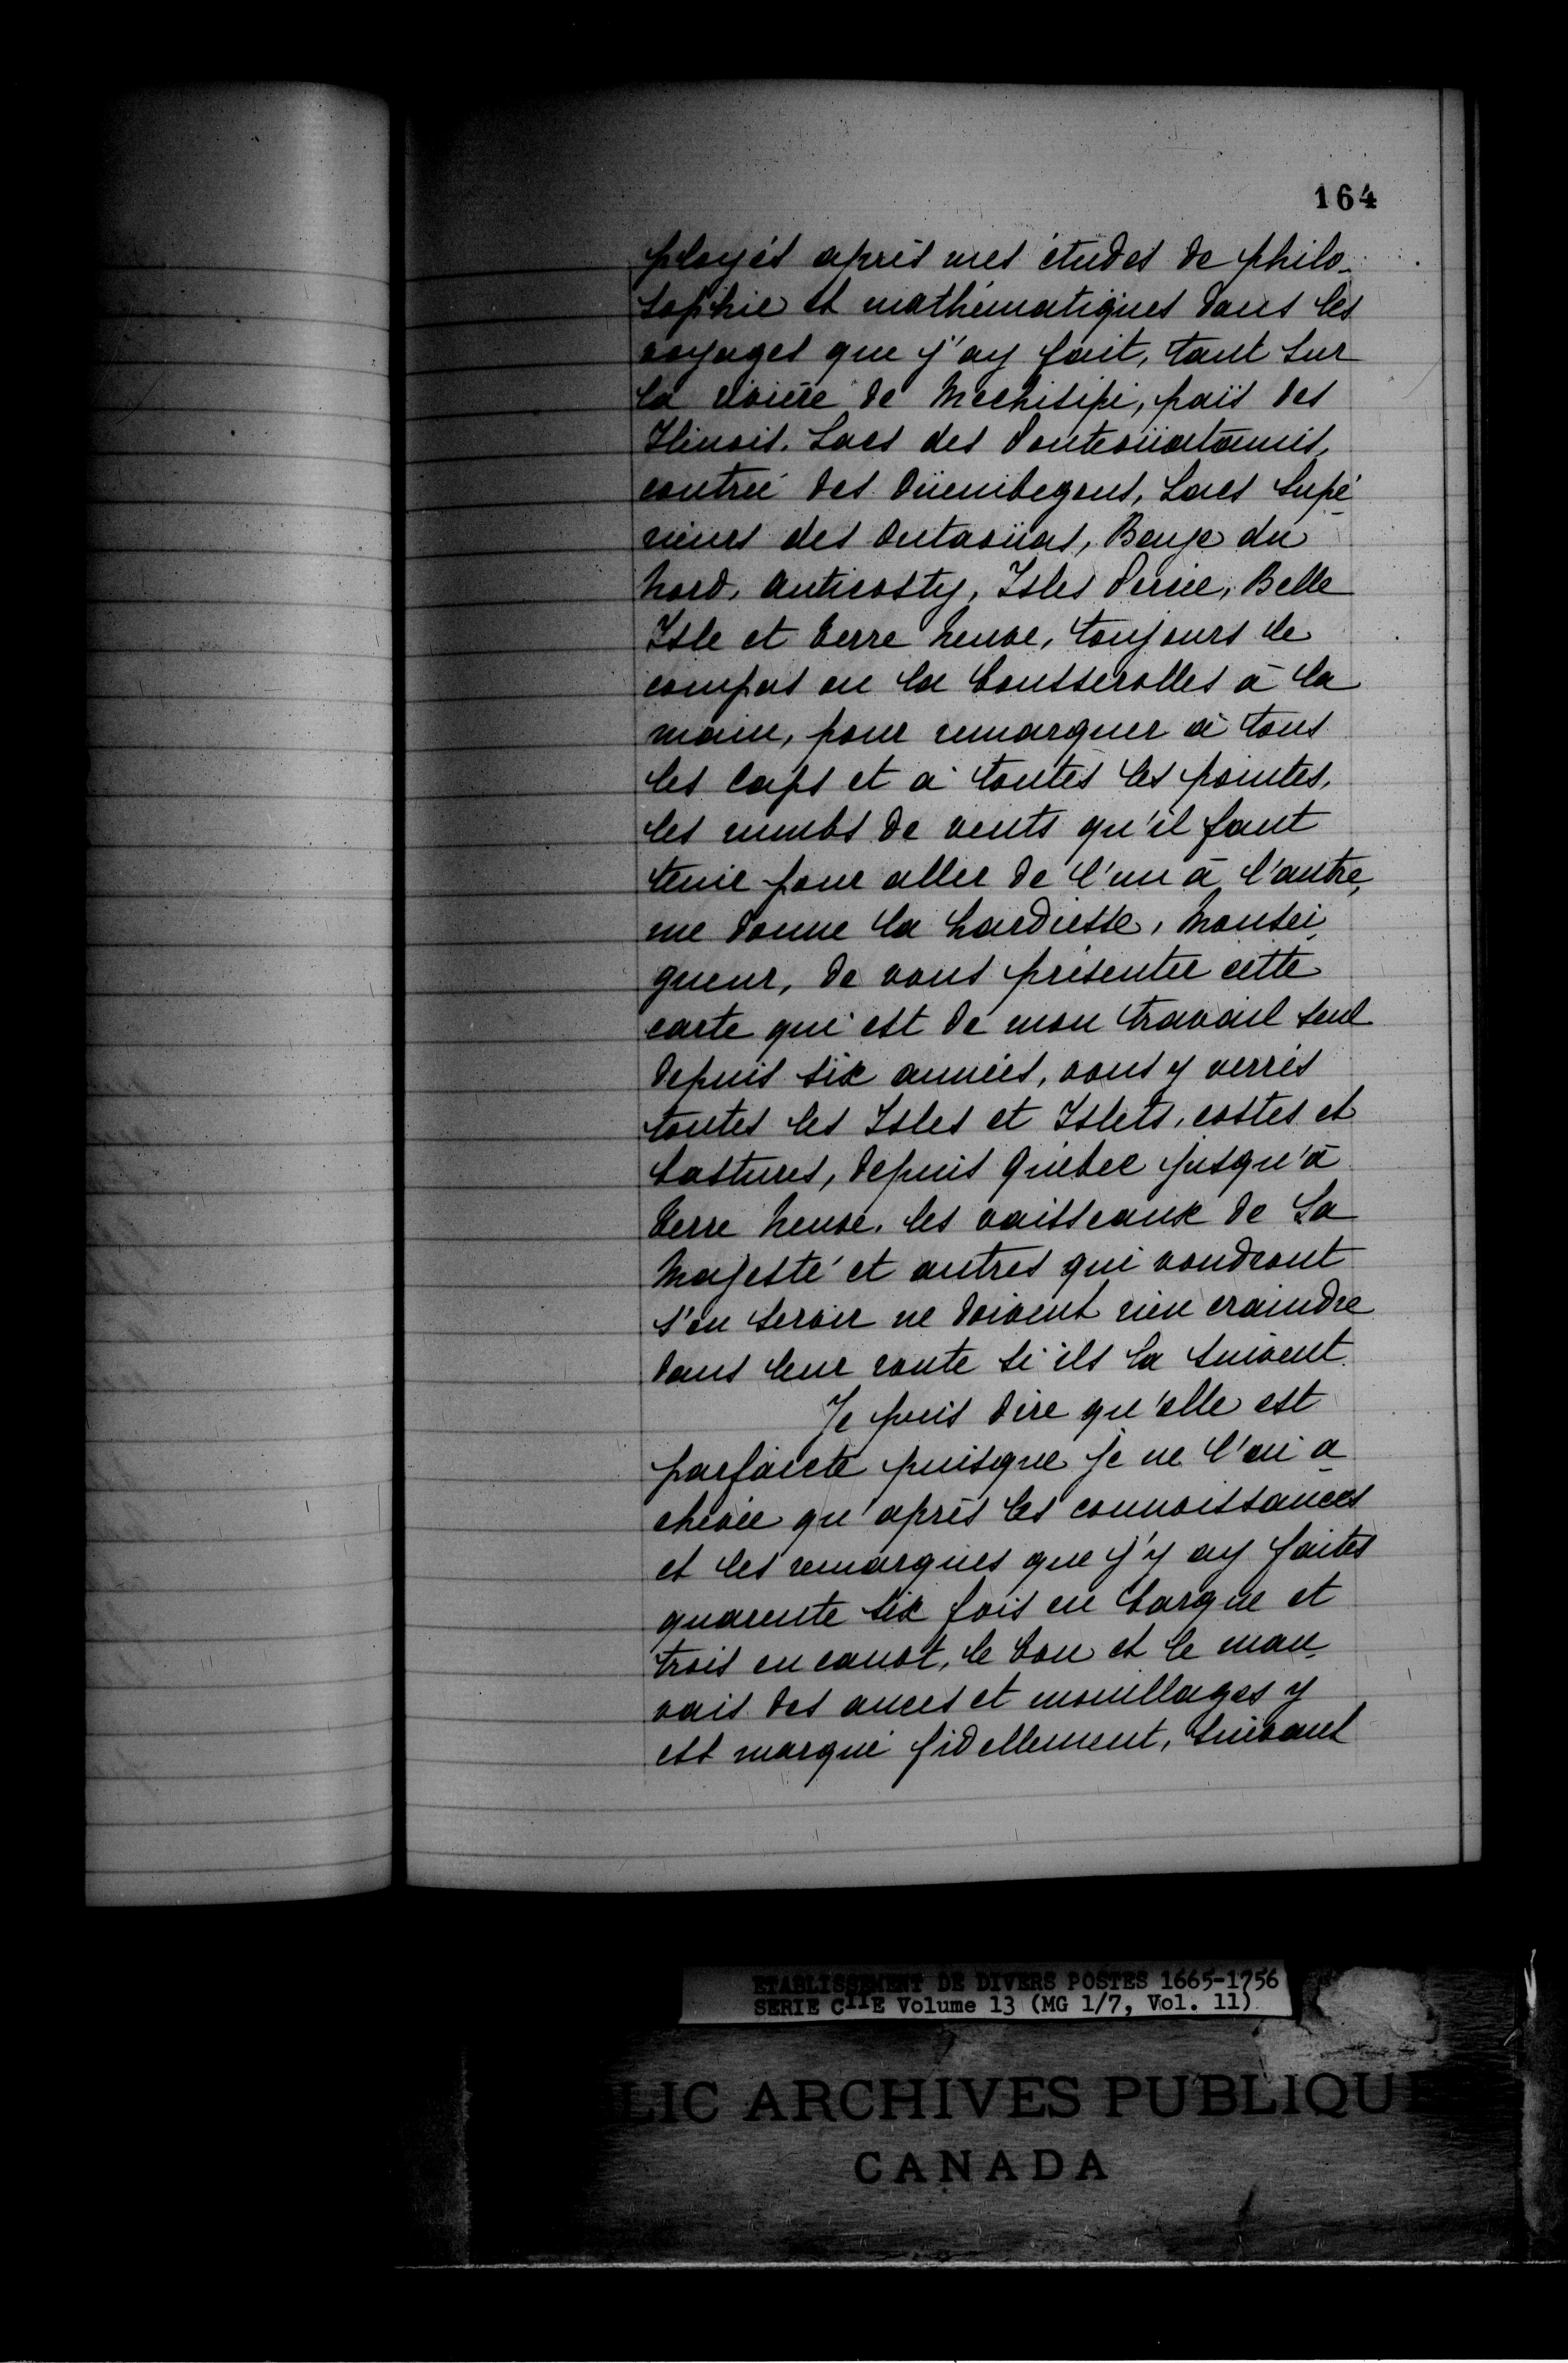 164
ployés après mes études de philo-
sophie et mathématiques dans les
voyages que j'ay fait, tant sur
la rivière de Mechisipi, païs des
Ilinois. Lacs des Pouteoüatamis,
contrée des Oüenibegons, Lacs Supé-
rieurs des Outaoüas, Baye du
Nord, Anticosty, Isles Percée, Belle
Isle et Terre Neuve, toujours le
compas ou la Bousserolles à la
main, pour remarquer à tous
les Caps et à toutes les pointes,
les rumbs de vents qu'il faut
tenir pour aller de l'un à l'autre,
me donne la hardiesse, Monsei-
gneur, de vous présenter cette
carte qui est de mon travail seul
depuis six années, vous y verrés
toutes les Isles et Islets, costes et
bastures, depuis Québec jusqu'à
Terre Neuve, les vaisseaux de Sa
Majesté et autres qui voudront
s'en servir ne doivent rien craindre
dans leur route si ils la suivent.
Je puis dire qu'elle est
parfaicte puisque je ne l'ai a-
chevée qu'après les connoissances
et les remarques que j'y ay faites
quarente six fois en barque et
trois en canot, le bon et le mau-
vais des ances et mouillages y
est marqué fidellement, suivant
ETABLISSEMENT DE DIVERS POSTES 1665-1756
SERIE C11E Volume 13 (MG 1/7, Vol. 11)
LIC ARCHIVES PUBLIQUE
CANADA